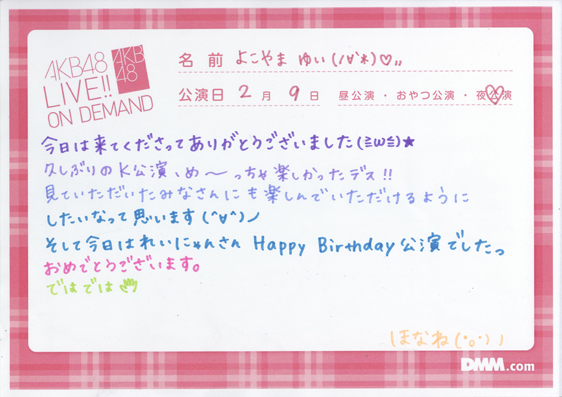 AKB48
LIVE!!
ON DEMAND
AKB
48
名前 よこやま ゆい(ﾉ∀`*)♡,,
公演日 2月 9日 昼公演・おやつ公演・夜公演
今日は来てくださってありがとうございました(≧ω≦)★
久しぶりのK公演、め〜っちゃ楽しかったデス!!
見ていただいたみなさんにも楽しんでいただけるように
したいなって思います(^∀^)ノ
そして今日はれいにゃんさん Happy Birthday公演でしたっ
おめでとうございます。
ではでは
ほなね(°o°)
DMM.com